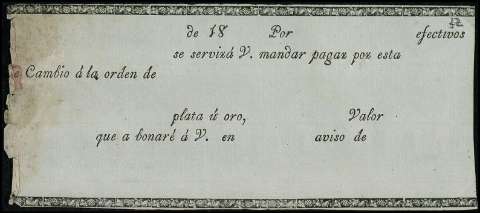 de 18 Por efectivos
se servirá V. mandar pagar por esta
Cambio á la orden de
plata ú oro, Valor
que a bonaré á V. en aviso de